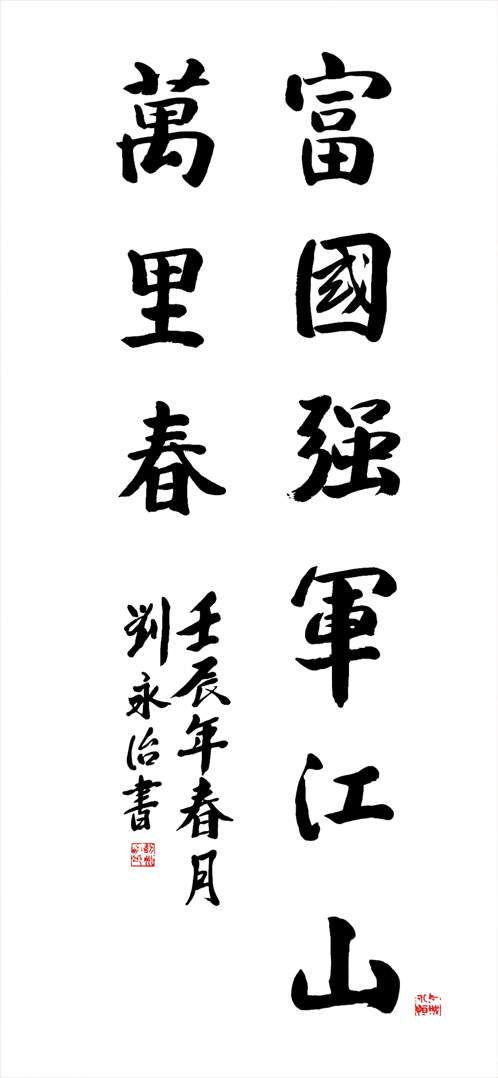 富國强軍江山
萬里春
壬辰年春月
劉永治書